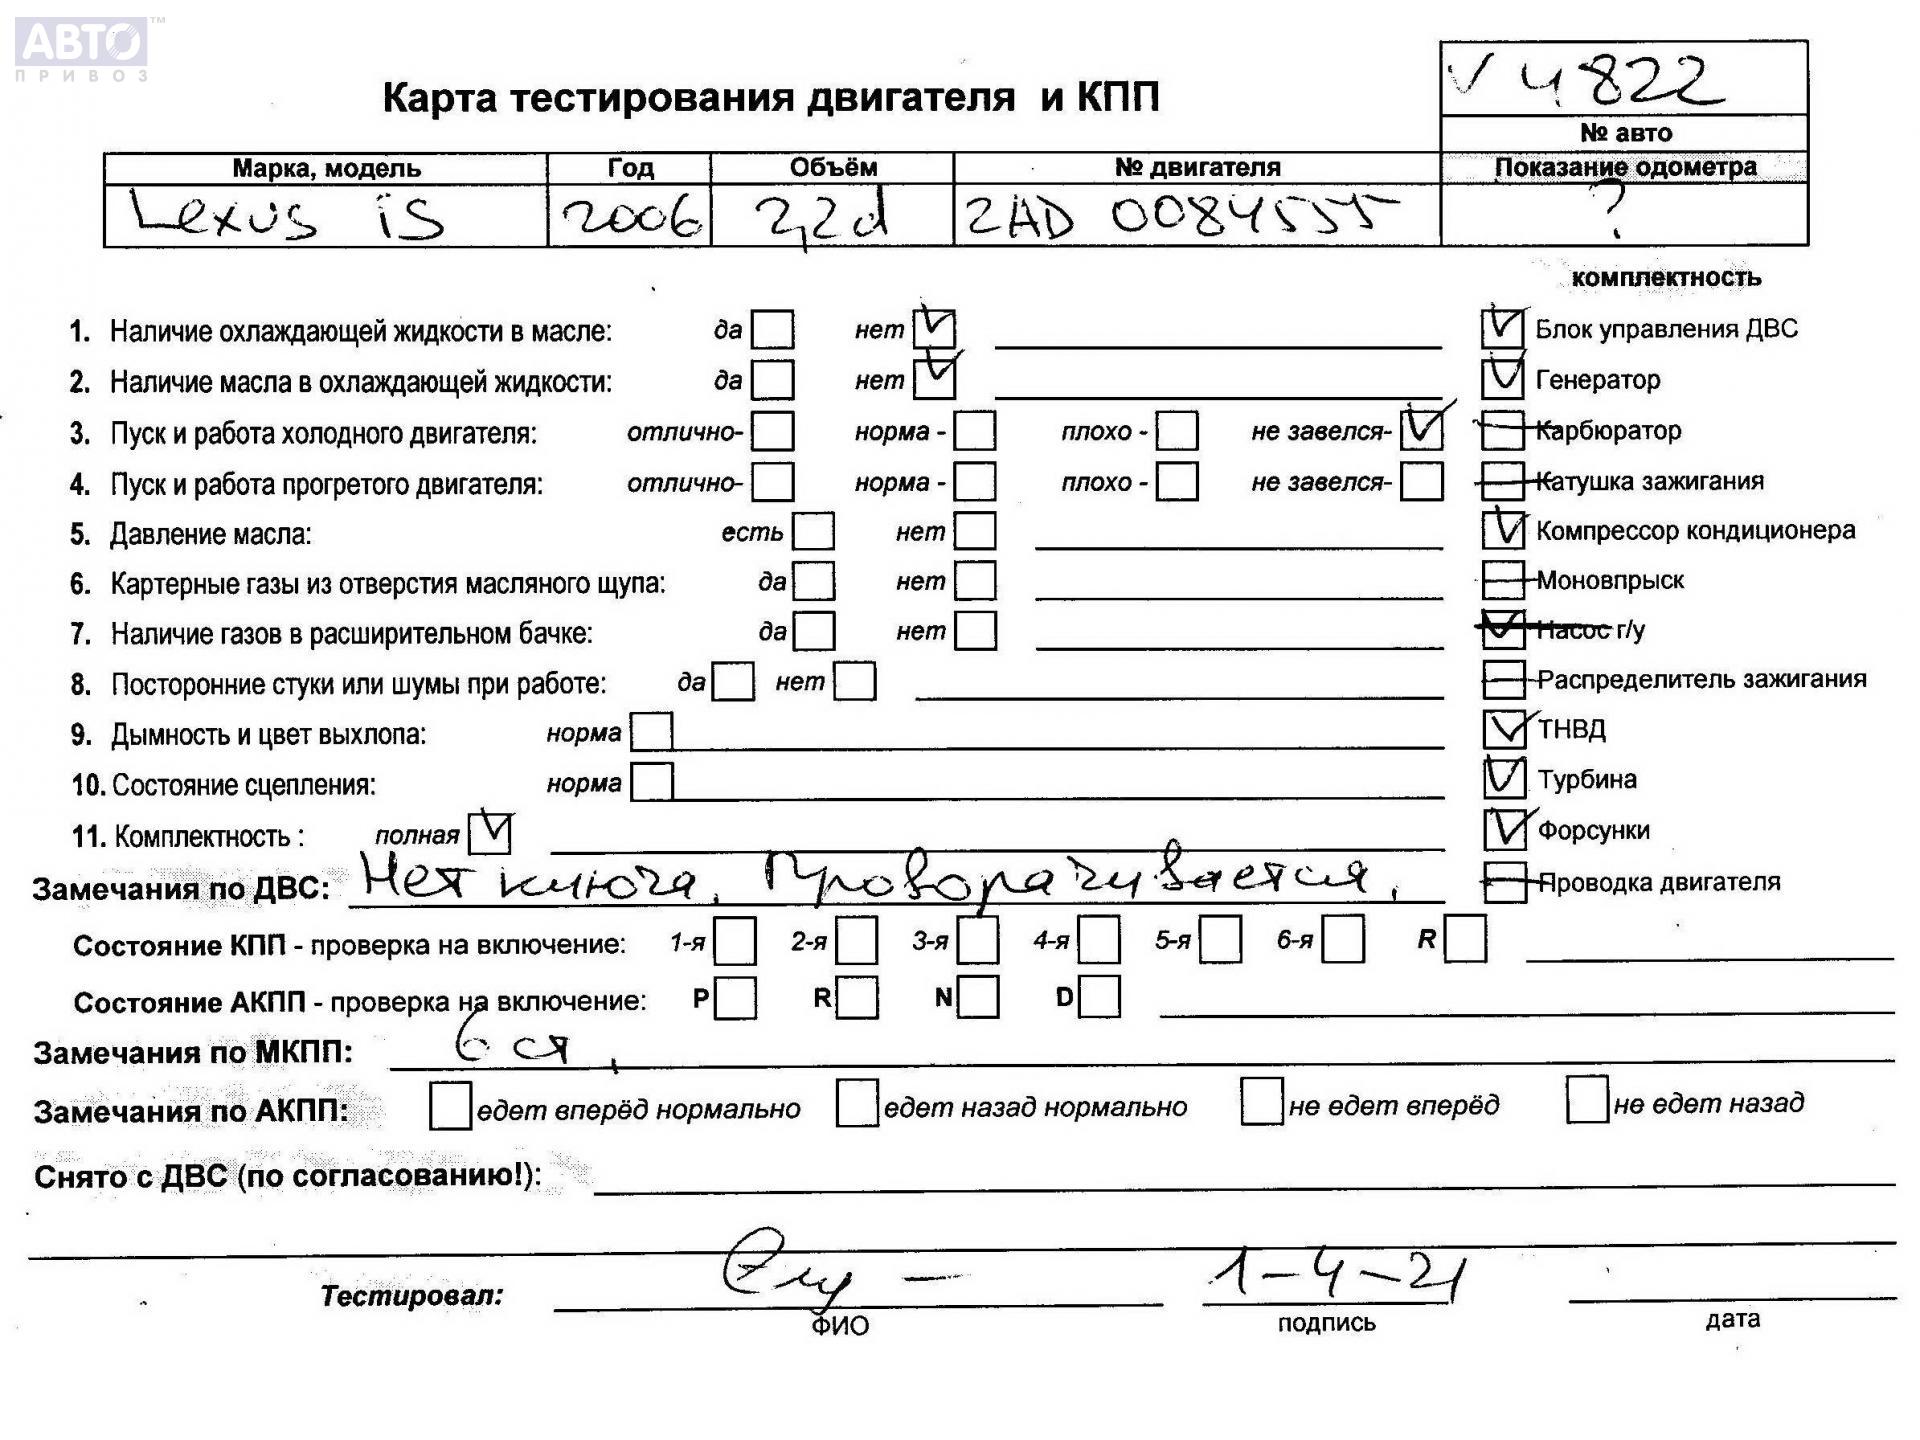 АВТО™
ПРИВОЗ
V 4822
Карта тестирования двигателя и КПП
№ авто
Марка, модель Год Объём № двигателя Показание одометра
Lexus is 2006 2,2d 2AD 0084555 ?
комплектность
1. Наличие охлаждающей жидкости в масле: да нет Блок управления ДВС
2. Наличие масла в охлаждающей жидкости: да нет Генератор
3. Пуск и работа холодного двигателя: отлично- норма - плохо - не завелся- Карбюратор
4. Пуск и работа прогретого двигателя: отлично- норма - плохо - не завелся- Катушка зажигания
5. Давление масла: есть нет Компрессор кондиционера
6. Картерные газы из отверстия масляного щупа: да нет Моновпрыск
7. Наличие газов в расширительном бачке: да нет Насос г/у
8. Посторонние стуки или шумы при работе: да нет Распределитель зажигания
9. Дымность и цвет выхлопа: норма ТНВД
10. Состояние сцепления: норма Турбина
11. Комплектность : полная Форсунки
Замечания по ДВС: Нет ключа. Проворачивается. Проводка двигателя
Состояние КПП - проверка на включение: 1-я 2-я 3-я 4-я 5-я 6-я R
Состояние АКПП - проверка на включение: P R N D
Замечания по МКПП: 6 ст.
Замечания по АКПП: едет вперёд нормально едет назад нормально не едет вперёд не едет назад
Снято с ДВС (по согласованию!):
Тестировал: 1-4-21
ФИО подпись дата